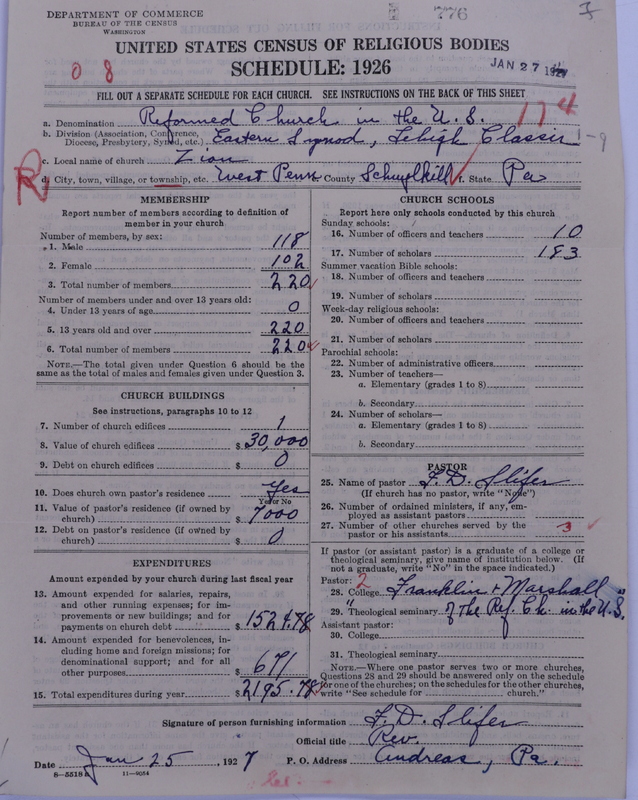 DEPARTMENT OF COMMERCE
BUREAU OF THE CENSUS
WASHINGTON
776
UNITED STATES CENSUS OF RELIGIOUS BODIES
SCHEDULE: 1926
0 8
JAN 27 1927
FILL OUT A SEPARATE SCHEDULE FOR EACH CHURCH. SEE INSTRUCTIONS ON THE BACK OF THIS SHEET
a. Denomination Reformed Church in the U. S. 174
b. Division (Association, Conference, Diocese, Presbytery, Synod, etc.) Eastern Synod, Lehigh Classis 1-9
c. Local name of church Zion
d. City, town, village, or township, etc. West Penn County Schuylkill f. State Pa
MEMBERSHIP
Report number of members according to definition of member in your church
Number of members, by sex:
1. Male 118
2. Female 102
3. Total number of members 220
Number of members under and over 13 years old:
4. Under 13 years of age 0
5. 13 years old and over 220
6. Total number of members 220
NOTE.—The total given under Question 6 should be the same as the total of males and females given under Question 3.
CHURCH BUILDINGS
See instructions, paragraphs 10 to 12
7. Number of church edifices 1
8. Value of church edifices $ 30,000
9. Debt on church edifices $ 0
10. Does church own pastor's residence Yes
Yes or No
11. Value of pastor's residence (if owned by church) $ 7000
12. Debt on pastor's residence (if owned by church) $ 0
EXPENDITURES
Amount expended by church during last fiscal year
13. Amount expended for salaries, repairs, and other running expenses; for improvements or new buildings; and for payments on church debt $ 1524.78
14. Amount expended for benevolences, including home and foreign missions; for denominational support; and for all other purposes $ 671
15. Total expenditures during year $ 2195.78
CHURCH SCHOOLS
Report here only schools conducted by this church
Sunday schools:
16. Number of officers and teachers 10
17. Number of scholars 183
Summer vacation Bible schools:
18. Number of officers and teachers
19. Number of scholars
Week-day religious schools:
20. Number of officers and teachers
21. Number of scholars
Parochial schools:
22. Number of administrative officers
23. Number of teachers—
a. Elementary (grades 1 to 8)
b. Secondary
24. Number of scholars—
a. Elementary (grades 1 to 8)
b. Secondary
PASTOR
25. Name of pastor F. D. Slifer
(If church has no pastor, write "None")
26. Number of ordained ministers, if any, employed as assistant pastors
27. Number of other churches served by the pastor or his assistants 3
If pastor (or assistant pastor) is a graduate of a college or theological seminary, give name of institution below. (If not a graduate, write "No" in the space indicated.)
Pastor: 2
28. College Franklin + Marshall
29. Theological seminary of the Ref. Ch. in the U.S.
Assistant pastor:
30. College
31. Theological seminary
NOTE.—Where one pastor serves two or more churches, Questions 28 and 29 should be answered only on the schedule for one of the churches; on the schedules for the other churches, write "See schedule for church."
Signature of person furnishing information F. D. Slifer
Official title Rev.
Date Jan 25, 1927 P. O. Address Andreas, Pa.
8—5518 11—9054